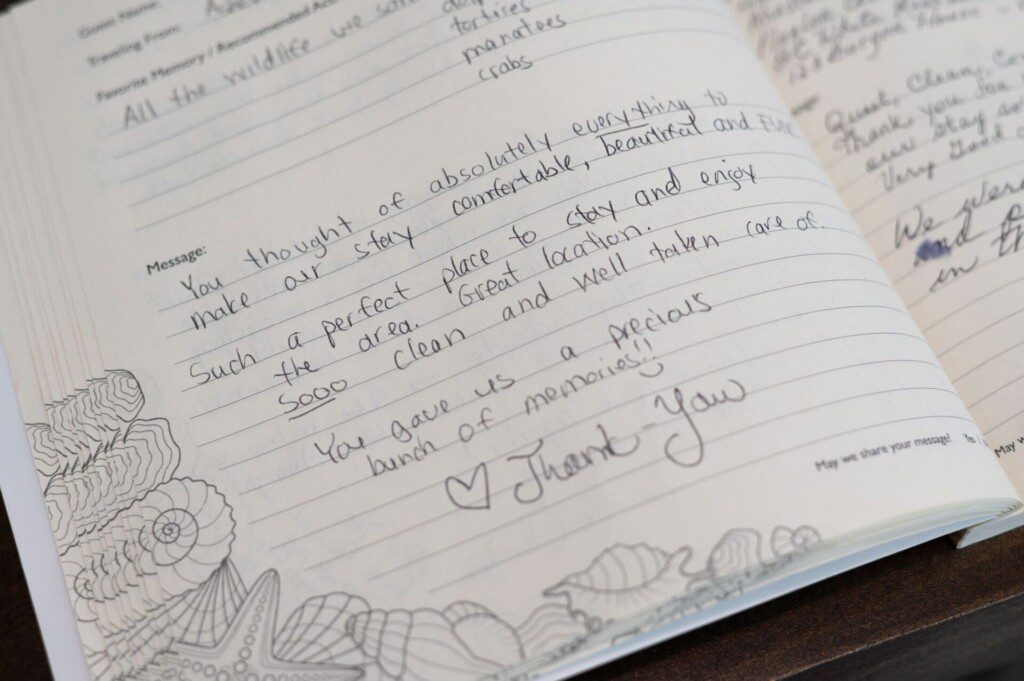 Guest Name:
Traveling From:
Favorite Memory / Recommended
All the wildlife we
tortires
manatees
crabs
Message:
You thought of absolutely everything to
make our stay comfortable, beautiful and FUN
Such a perfect place to stay and enjoy
the area. Great location.
sooo clean and well taken care of.
You gave us a precious
bunch of memories!!
♡ Thank-You
May we share your message? Yes
Quiet, Clean,
Thank you for
our stay
Very Good
We were
and
in
May